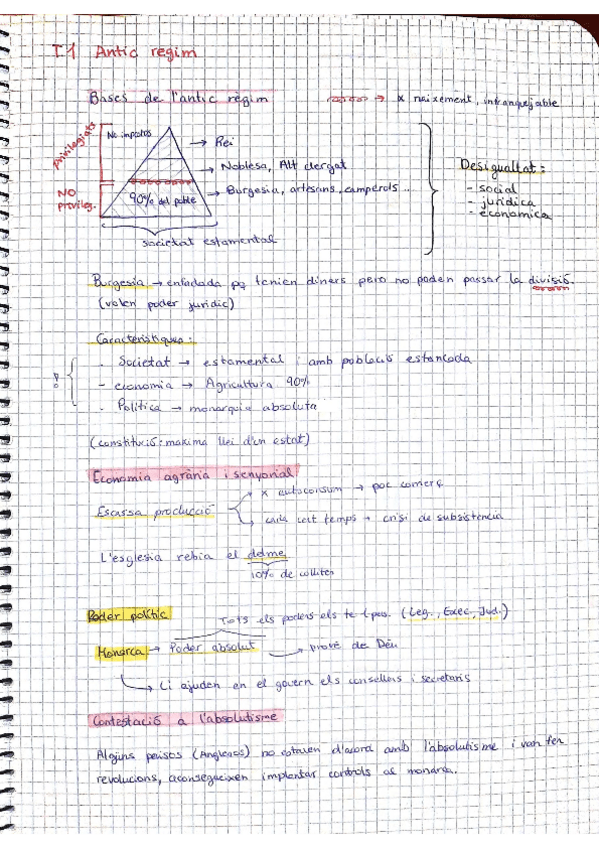 T.1 Antic regim
Bases de l'antic règim
→ x naixement, intranquejable
Privilegiats
No impostos
→ Rei
→ Noblesa, Alt clergat
→ Burgesia, artesans, camperols ...
NO privileg.
90% del poble
societat estamental
Desigualtat:
- social
- jurídica
- economica
Burgesia → enfadada pq tenien diners pero no poden passar la divisió.
(volen poder jurídic)
Característiques:
. Societat → estamental i amb població estancada
- economia → Agricultura 90%
. Política → monarquia absoluta
(constitució: maxima llei d'un estat)
Economia agrària i senyorial
Escassa producció
x autoconsum → poc comerç
cada cert temps → crisi de subsistencia
L'esglesia rebia el delme
10% de collites
Poder polític
Tots els poders els te 1 pers. (Leg., Exec, Jud.)
Monarca → Poder absolut → prové de Déu
→ Li ajuden en el govern els consellers i secretaris
Contestació a l'absolutisme
Alguns països (Anglesos) no estaven d'acord amb l'absolutisme i van fer
revolucions, aconsegueixen implentar controls al monarca.